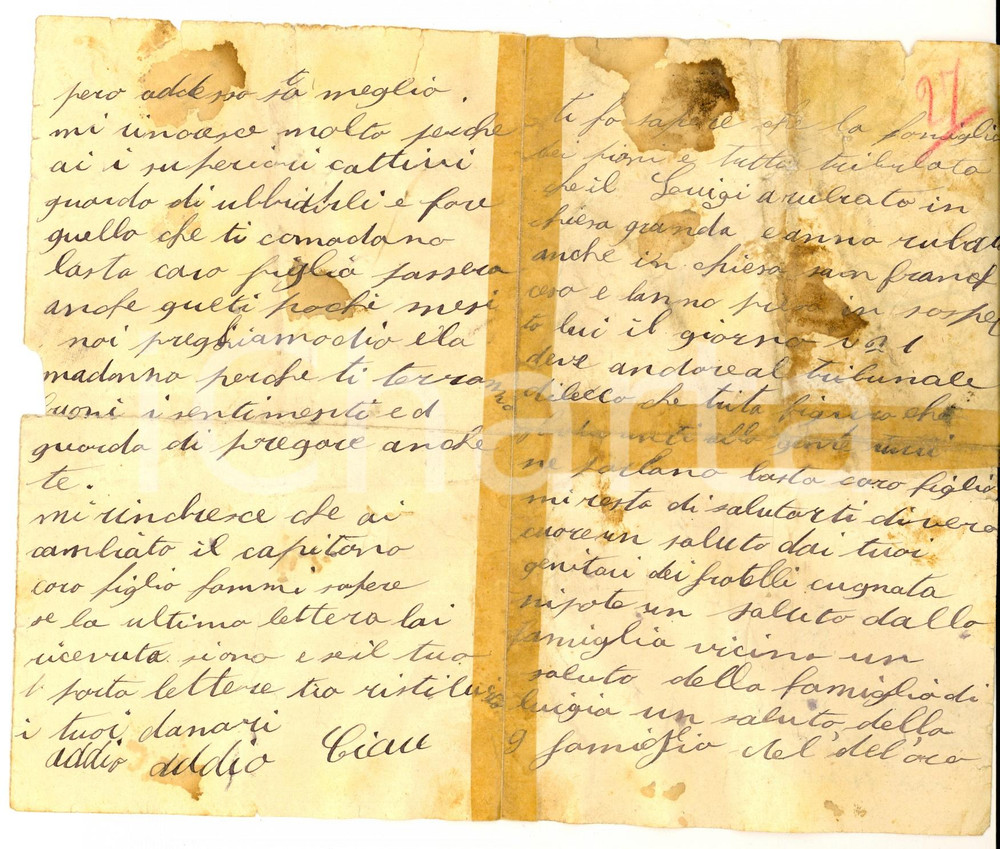 pero addesso stà meglio.
mi rincresce molto perche
ai i superiori cattivi
guarda di ubbidirli e fare
quello che ti comadano
basta caro figlio passera
anche queti pochi mesi
noi preghiamo dio e la
madonna perche ti terra
buoni i sentimenti ed
guarda di pregare anche
te.
mi rincresce che ai
cambiato il capitano
caro figlio fammi sapere
se la ultima lettera lai
ricevuta si o no e se il tuo
porta lettere tia ristituito
i tuoi danari
addio addio Ciau
27
ti fo sapere che la famiglia
dei piani e tutta tribulata
che il Louigi a rubato in
chiesa granda e anno rubato
anche in chiesa san franc
esco e lanno preso in sospet
to lui il giorno
deve andare al tribunale
di lecco che tuta
ne parlano basta caro figlio
mi resta di salutarti di vero
cuore un saluto dai tuoi
genitori dei fratelli cugnata
nipote un saluto dalla
famiglia vicino un
saluto della famiglia di
luigia un saluto della
famiglia del del'oro
iCharta